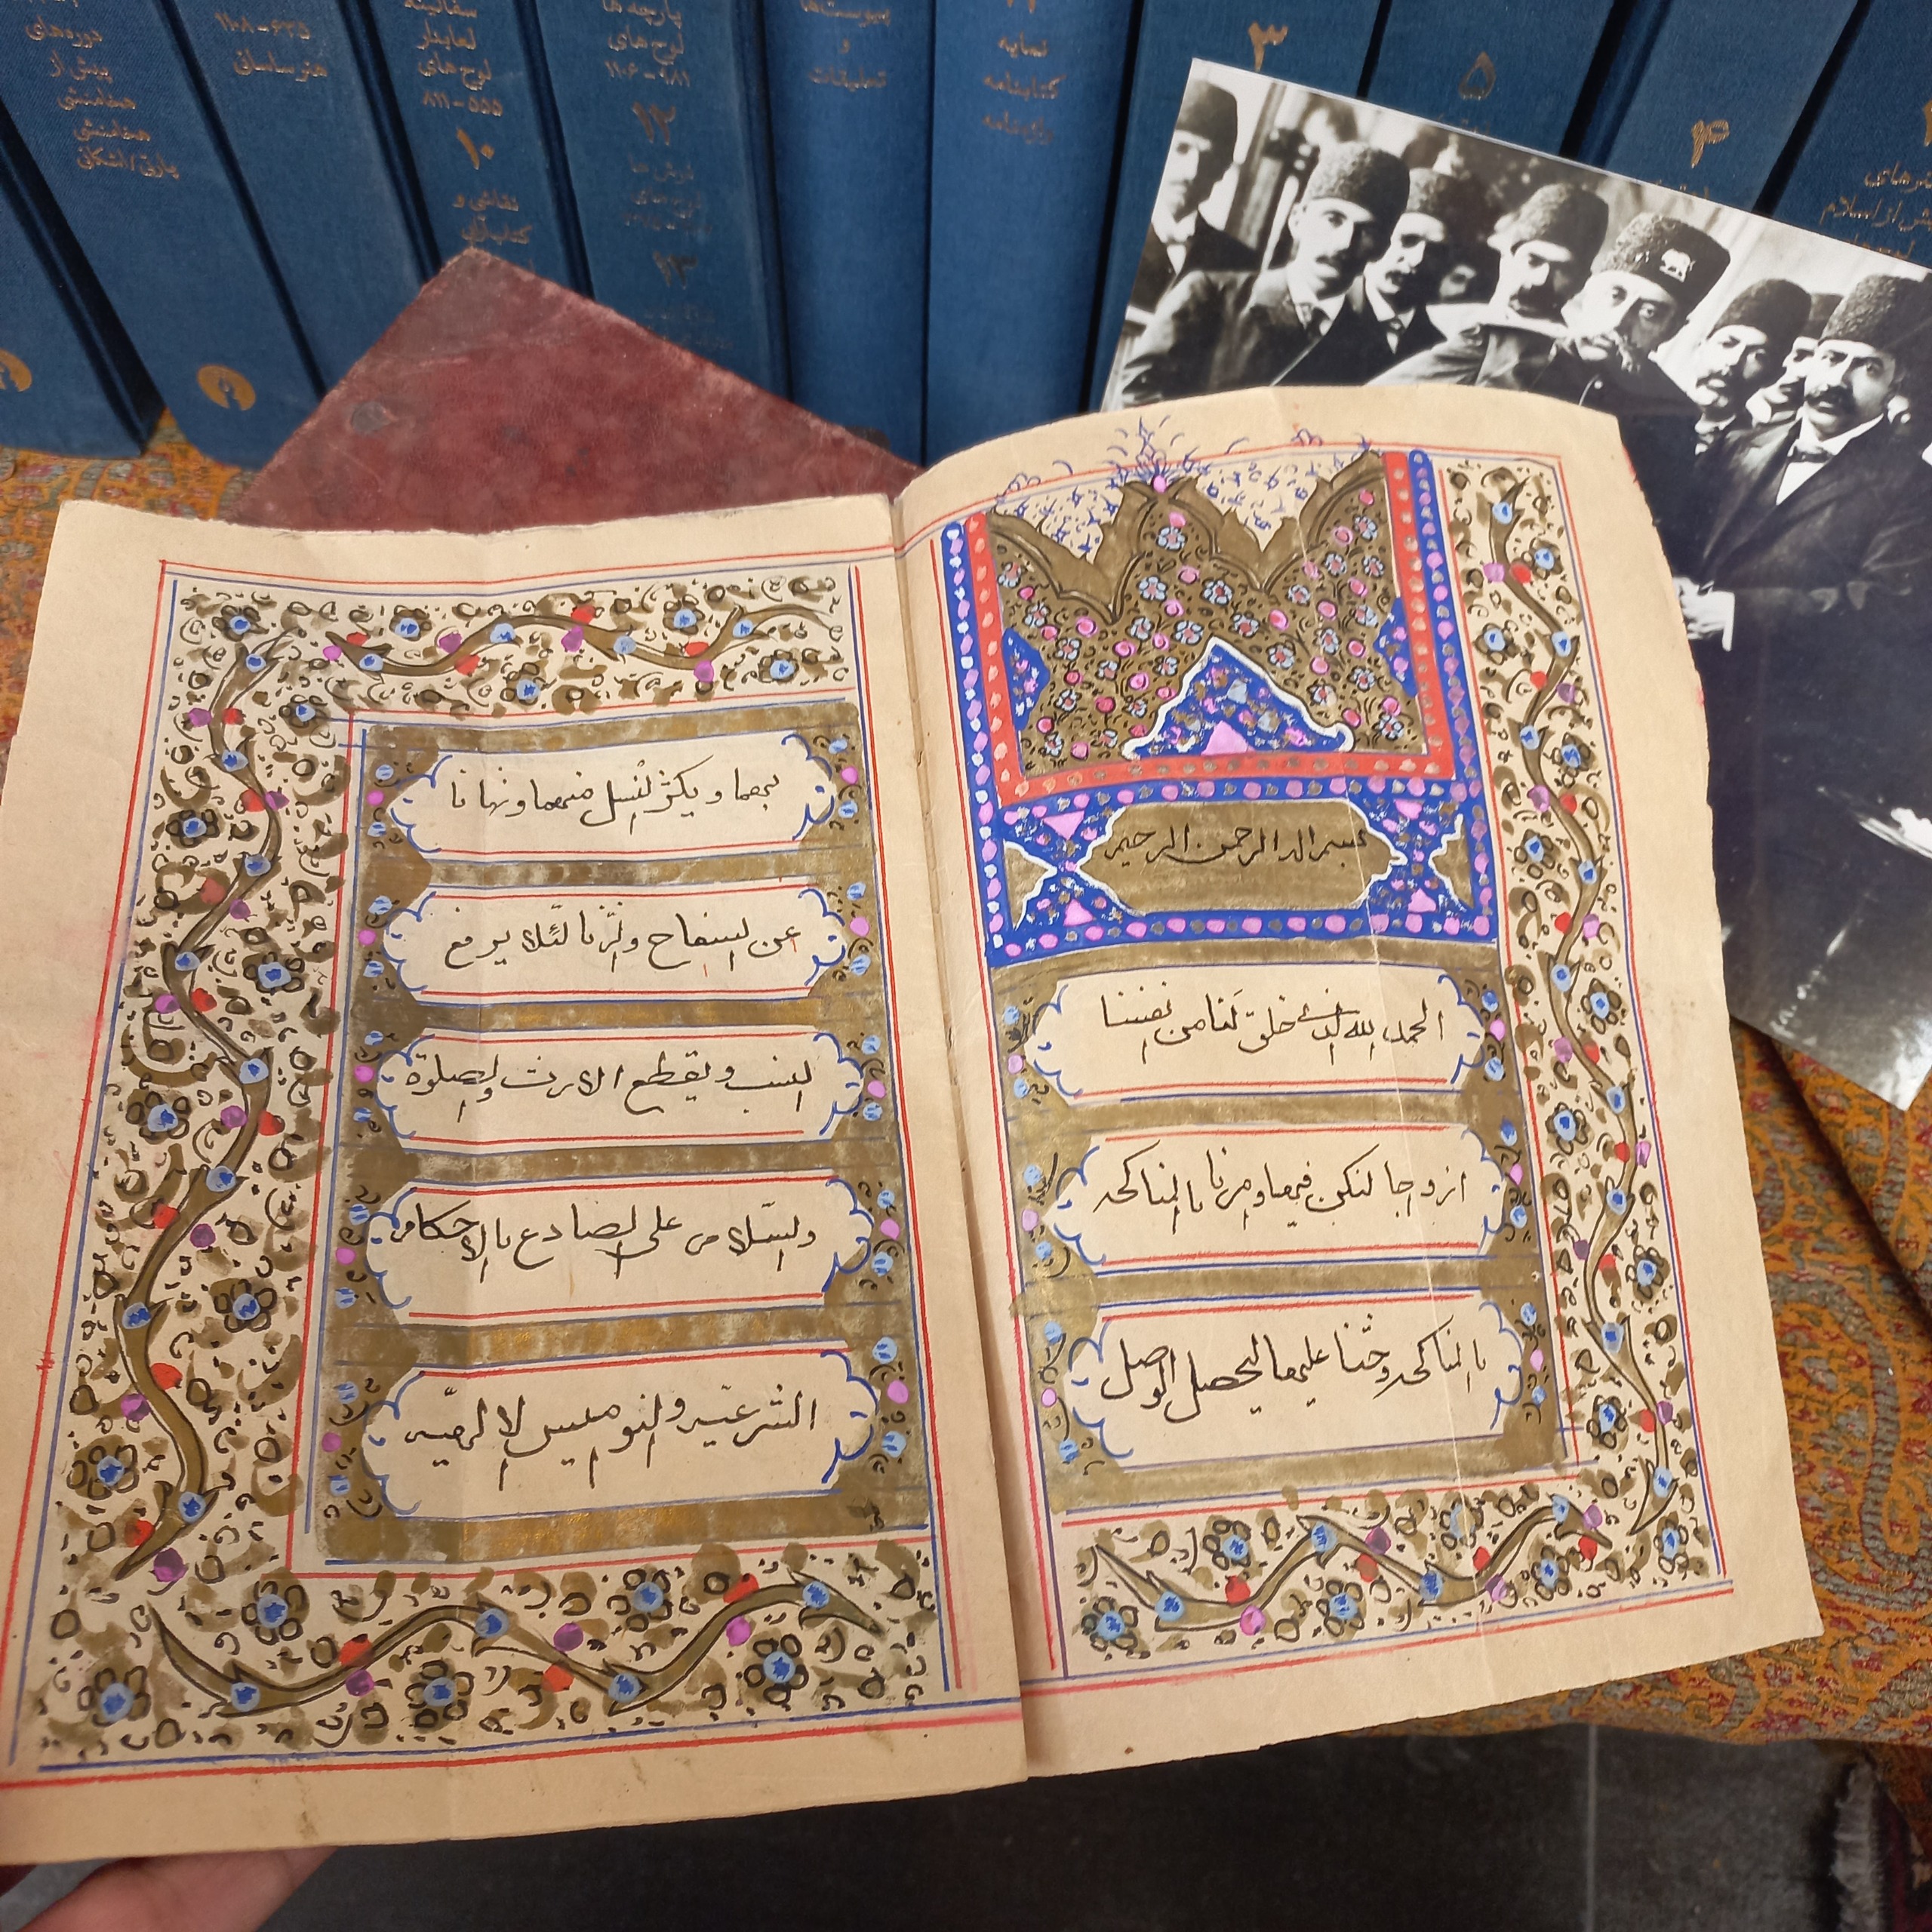 دوره‌های
پیش از
هخامنشی
هخامنشی
پارتی/اشکانی
۱۱۰۸-۶۳۵
هنر ساسانی
سفالینه
لعابدار
لوح‌های
۸۱۱-۵۵۵
۱۰
نقاشی و
کتاب‌آرایی
پارچه‌ها
لوح‌های
۱۱۰۶-۹۸۱
۱۲
۱۳
پیوست‌ها
و
تعلیقات
نمایه
کتابنامه
واژه‌نامه
۳
۵
۴
هنرهای
پیش از اسلام
بسم الله الرحمن الرحیم
الحمد لله الذی خلق لنا من انفسنا
ازواجا لنکن فیها و امرنا بالمناکحه
بالمناکحه و حثنا علیها لیحصل الوصل
بهما و یکثر النسل منهما و نهانا
عن السفاح و الزنا لئلا یرفع
النسب و یقطع الارث و الصلوة
و السلام علی الصادع بالاحکام
الشرعیه و النوامیس الالهیه